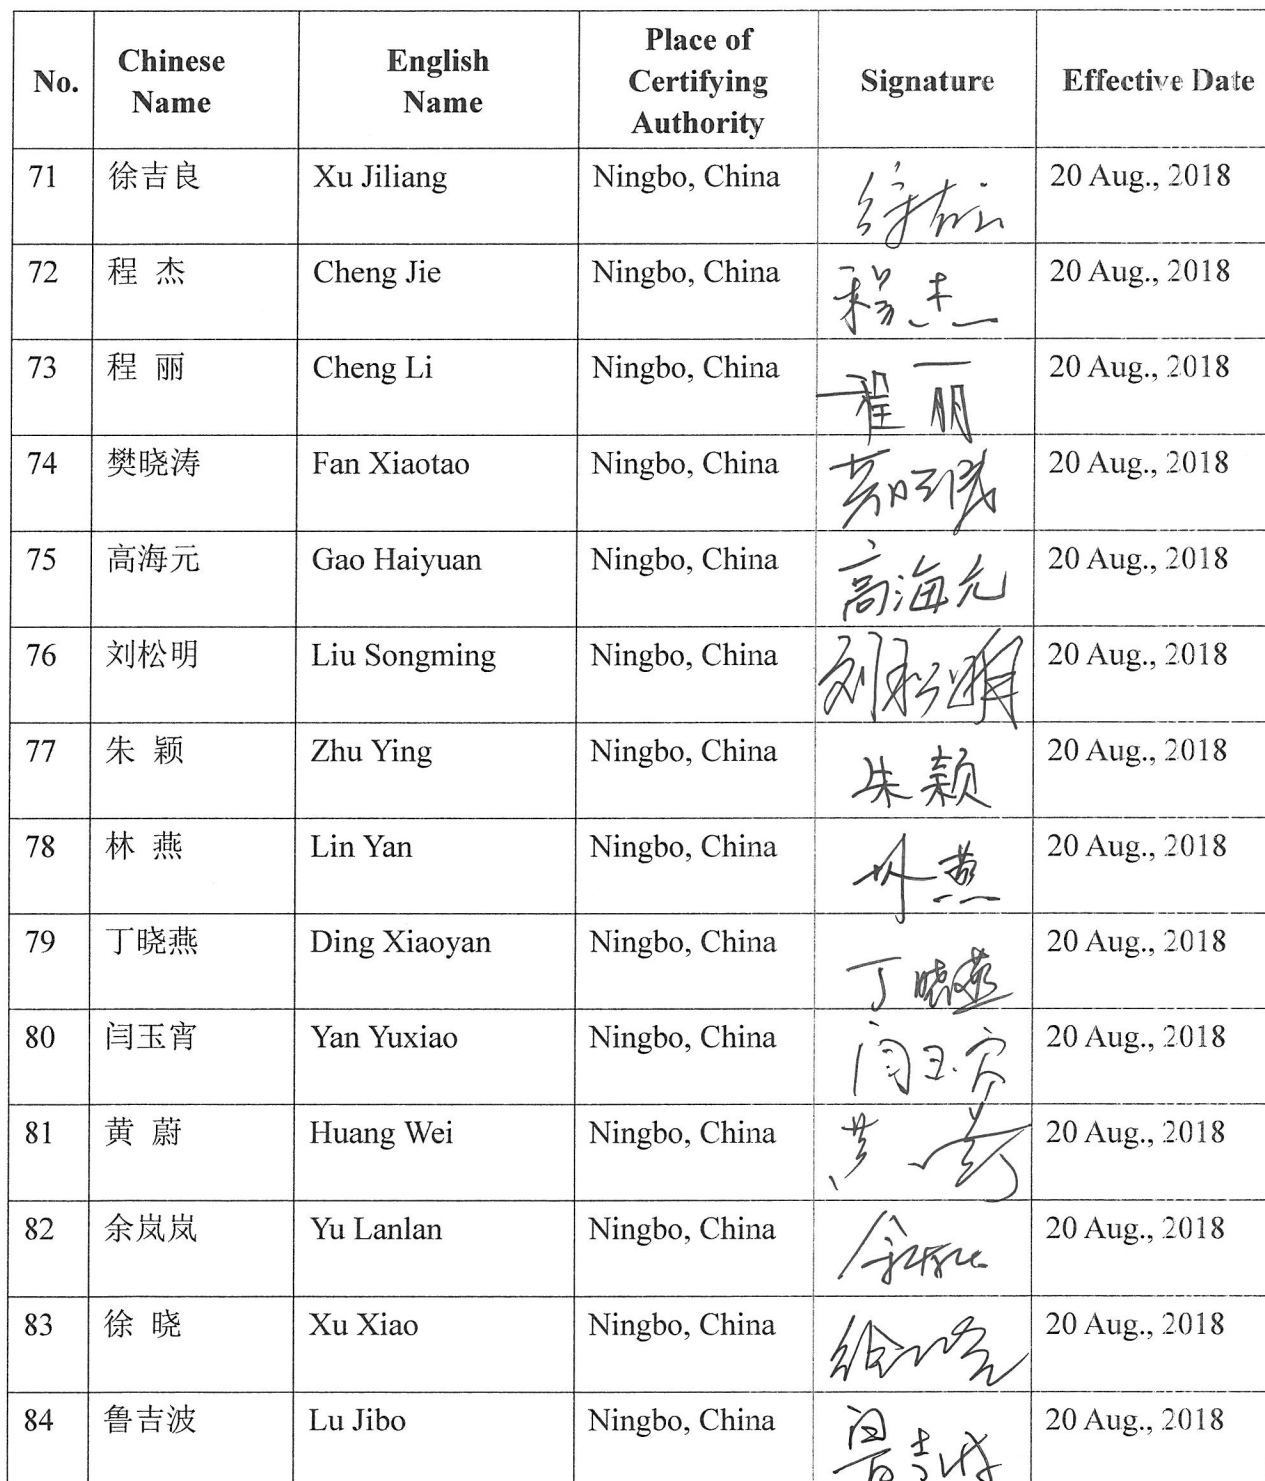 No. Chinese Name English Name Place of Certifying Authority Signature Effective Date
71 徐吉良 Xu Jiliang Ningbo, China 20 Aug., 2018
72 程 杰 Cheng Jie Ningbo, China 程杰 20 Aug., 2018
73 程 丽 Cheng Li Ningbo, China 程丽 20 Aug., 2018
74 樊晓涛 Fan Xiaotao Ningbo, China 20 Aug., 2018
75 高海元 Gao Haiyuan Ningbo, China 高海元 20 Aug., 2018
76 刘松明 Liu Songming Ningbo, China 刘松明 20 Aug., 2018
77 朱 颖 Zhu Ying Ningbo, China 朱颖 20 Aug., 2018
78 林 燕 Lin Yan Ningbo, China 林燕 20 Aug., 2018
79 丁晓燕 Ding Xiaoyan Ningbo, China 丁晓燕 20 Aug., 2018
80 闫玉宵 Yan Yuxiao Ningbo, China 20 Aug., 2018
81 黄 蔚 Huang Wei Ningbo, China 20 Aug., 2018
82 余岚岚 Yu Lanlan Ningbo, China 20 Aug., 2018
83 徐 晓 Xu Xiao Ningbo, China 20 Aug., 2018
84 鲁吉波 Lu Jibo Ningbo, China 20 Aug., 2018